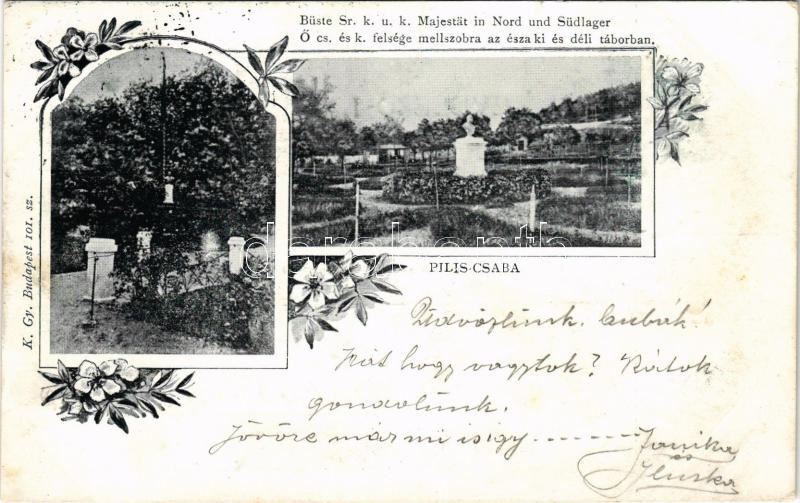 Büste Sr. k. u. k. Majestät in Nord und Südlager
Ő cs. és k. felsége mellszobra az észa ki és déli táborban.
K. Gy. Budapest 101. sz.
darabanth
PILIS-CSABA
Üdvözlünk.
Hát hogy vagytok? Rátok
gondolunk.
Jövőre már mi is így --------- Janika
és
Iluska